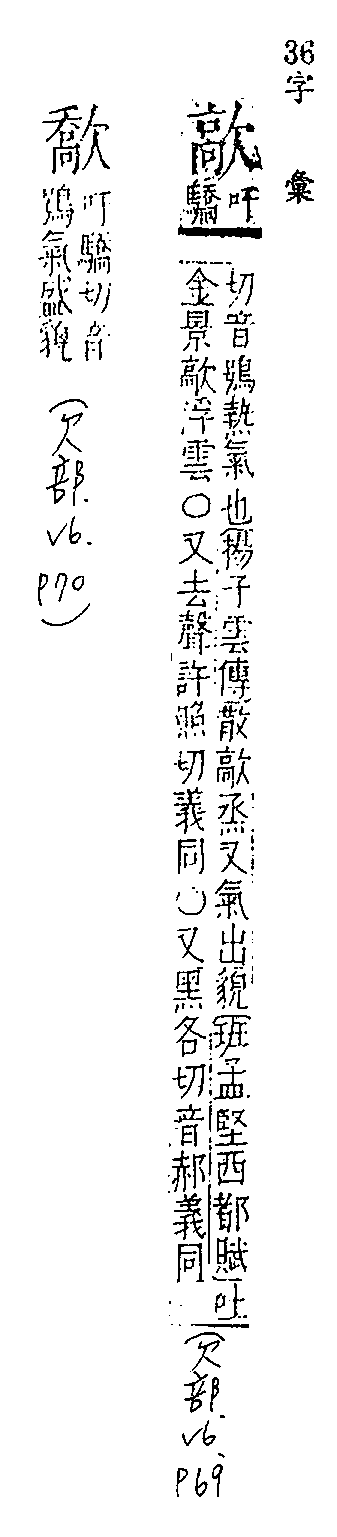 36字彙
歊吁驕
切音鴞熱氣也揚子雲傳散歊烝又氣出貌班孟堅西都賦吐
金景歊浮雲○又去聲許照切義同○又黑各切音郝義同
(欠部.v6.p69)
吁驕切音
鴞氣盛貌
(欠部.v6.p70)